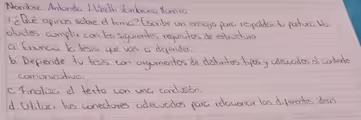 Nombre: Antonela
1 ¿Qué opinas sobre el tema? Escribe un ensayo para respaldar tu postura. No
olvides cumplir con los siguientes requisitos de estructura
a. Enuncia la tesis que vas a defender.
b. Defiende tu tesis con argumentos de distintos tipos y adecuados al contexto
comunicativo.
c. Finaliza el texto con una conclusión.
d. Utiliza los conectores adecuados para relacionar las diferentes ideas